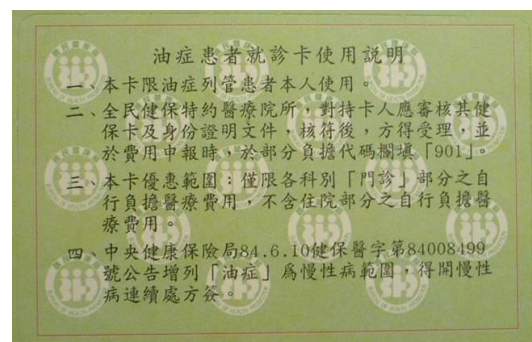 油症患者就診卡使用說明
一、本卡限油症列管患者本人使用。
二、全民健保特約醫療院所，對持卡人應審核其健
保卡及身份證明文件，核符後，方得受理，並
於費用申報時，於部分負擔代碼欄填「901」。
三、本卡優惠範圍：僅限各科別「門診」部分之自
行負擔醫療費用，不含住院部分之自行負擔醫
療費用。
四、中央健康保險局84.6.10健保醫字第84008499
號公告增列「油症」爲慢性病範圍，得開慢性
病連續處方箋。